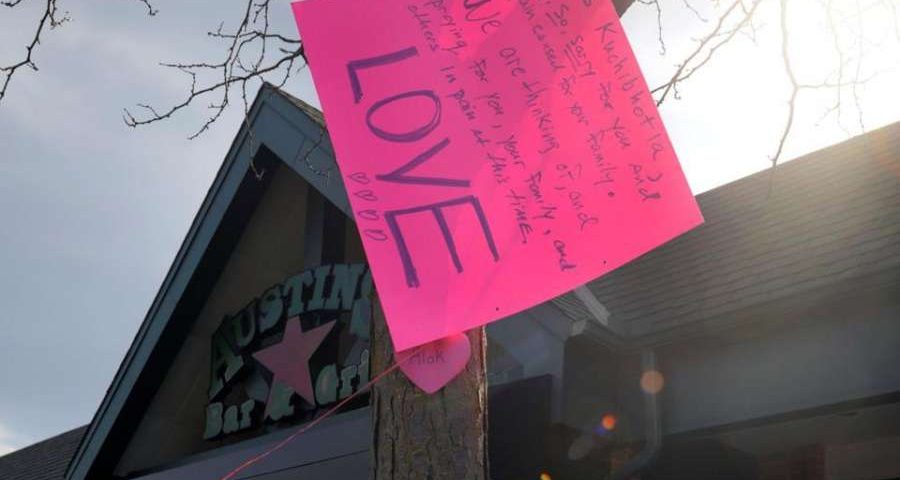 Kuchibhotla and
so, sorry for you and
caused for your family.
We are thinking of, and
praying for you, your family, and
others in pain at this time.
LOVE
Alok
AUSTIN
Bar & Gri